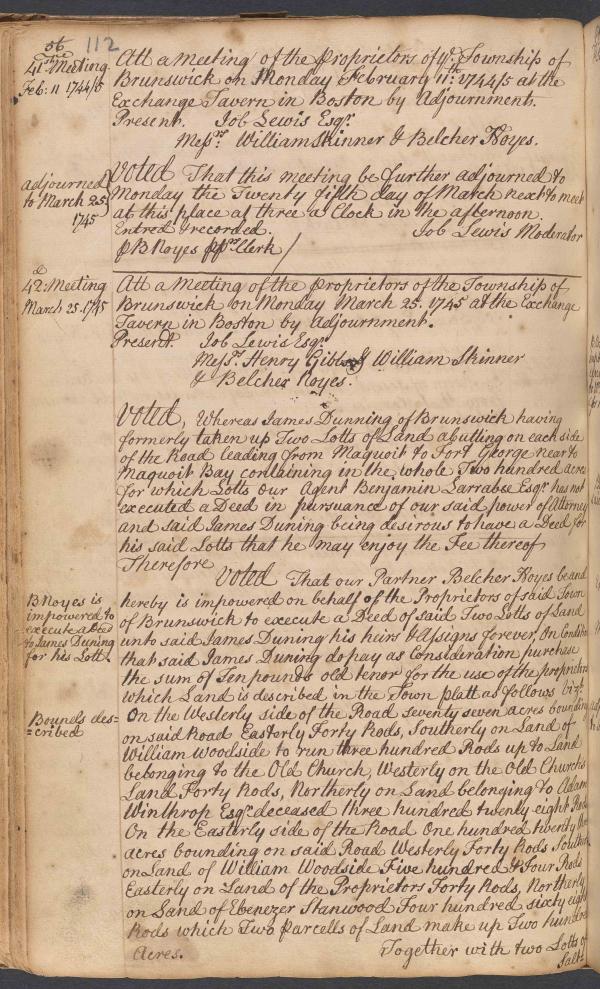 56 112
41st Meeting
Feb: 11 1744/5
Att a meeting of the Proprietors of ye. Township of
Brunswick on Monday February 11th. 1744/5 at the
Exchange Tavern in Boston by Adjournment.
Present. Job Lewis Esqr.
Messrs. William Skinner & Belcher Noyes.
adjourned
to March 25
1745
Voted That this meeting be further adjourned to
Monday the Twenty fifth day of March next to meet
at this place at three a Clock in the afternoon.
Entred & recorded. Job Lewis Moderator
P B Noyes Clerk
42d Meeting
March 25. 1745
Att a Meeting of the Proprietors of the Township of
Brunswick on Monday March 25. 1745 at the Exchange
Tavern in Boston by Adjournment.
Present. Job Lewis Esqr.
Messrs. Henry Gibbs & William Skinner
& Belcher Noyes.
Voted, Whereas James Dunning of Brunswick having
formerly taken up Two Lotts of Land abutting on each side
of the Road leading from Maquoit to Fort George near to
Maquoit Bay containing in the whole Two hundred acres
for which Lotts our Agent Benjamin Larrabee Esqr. has not
executed a Deed in pursuance of our said power of Attorney
and said James Duning being desirous to have a Deed for
his said Lotts that he may enjoy the Fee thereof
Therefore
Voted That our Partner Belcher Noyes be and
B Noyes is
impowered to
execute a Deed
to James Duning
for his Lott.
hereby is impowered on behalf of the Proprietors of said Town
of Brunswick to execute a Deed of said Two Lotts of Land
unto said James Duning his heirs & Assigns forever, On Condition
that said James Duning do pay as Consideration purchase
the sum of Ten pounds old tenor for the use of the proprietors
which Land is described in the Town platt as follows vizt.
Bounds des=
=cribed
On the Westerly side of the Road seventy seven acres bounding
on said Road Easterly Forty Rods, Southerly on Land of
William Woodside to run three hundred Rods up to Land
belonging to the Old Church, Westerly on the Old Churchs
Land Forty Rods, Northerly on Land belonging to Adam
Winthrop Esqr. deceased three hundred twenty eight Rods
On the Easterly side of the Road One hundred twenty
acres bounding on said Road Westerly Forty Rods
on Land of William Woodside Five hundred & Four Rods
Easterly on Land of the Proprietors Forty Rods, Northerly
on Land of Ebenezer Stanwood Four hundred sixty eight
Rods which Two parcells of Land make up Two hundred
Acres. Together with two Lotts of
Salt